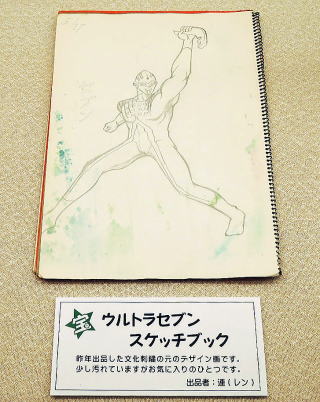 セブン
宝
ウルトラセブン
スケッチブック
昨年出品した文化刺繍の元のデザイン画です。
少し汚れていますがお気に入りのひとつです。
出品者:蓮(レン)